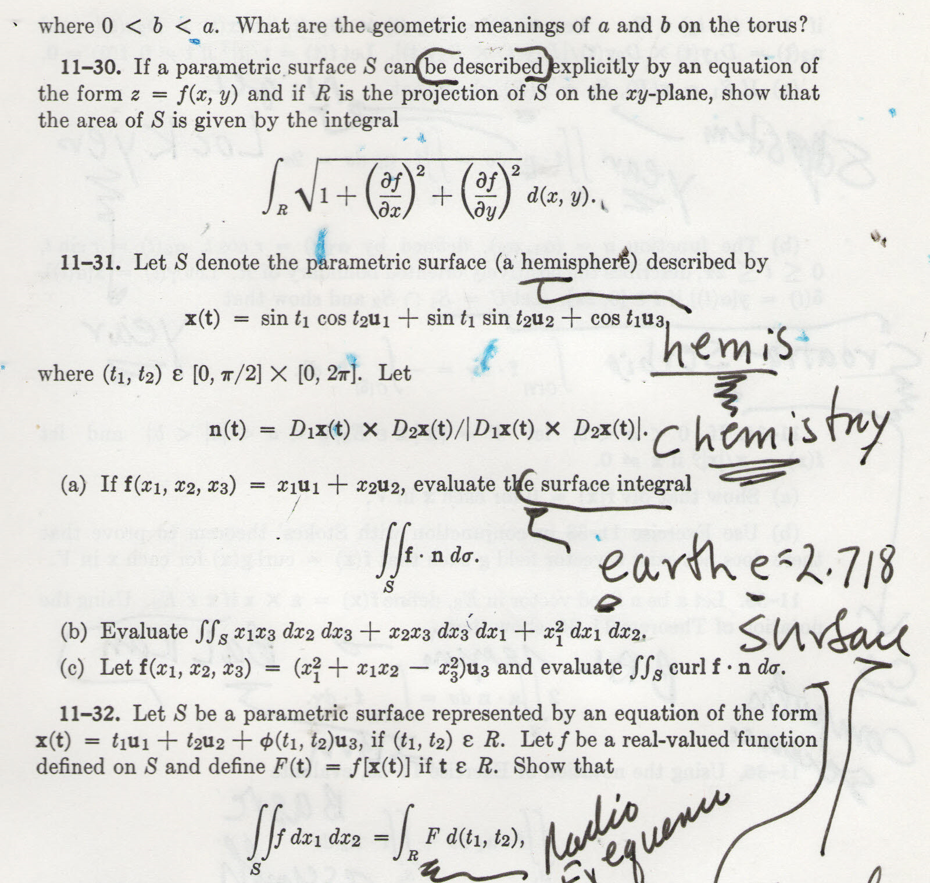 where 0 < b < a. What are the geometric meanings of a and b on the torus?
11–30. If a parametric surface S can be described explicitly by an equation of
the form z = f(x, y) and if R is the projection of S on the xy-plane, show that
the area of S is given by the integral
∫_R √(1 + (∂f/∂x)² + (∂f/∂y)²) d(x, y).
11–31. Let S denote the parametric surface (a hemisphere) described by
x(t) = sin t₁ cos t₂u₁ + sin t₁ sin t₂u₂ + cos t₁u₃,
hemis
where (t₁, t₂) ε [0, π/2] × [0, 2π]. Let
n(t) = D₁x(t) × D₂x(t)/|D₁x(t) × D₂x(t)|.
chemistry
(a) If f(x₁, x₂, x₃) = x₁u₁ + x₂u₂, evaluate the surface integral
∬_S f · n dσ.
earth e 2.718
surface
(b) Evaluate ∬_S x₁x₃ dx₂ dx₃ + x₂x₃ dx₃ dx₁ + x₁² dx₁ dx₂.
(c) Let f(x₁, x₂, x₃) = (x₁² + x₁x₂ − x₃²)u₃ and evaluate ∬_S curl f · n dσ.
11–32. Let S be a parametric surface represented by an equation of the form
x(t) = t₁u₁ + t₂u₂ + φ(t₁, t₂)u₃, if (t₁, t₂) ε R. Let f be a real-valued function
defined on S and define F(t) = f[x(t)] if t ε R. Show that
∬_S f dx₁ dx₂ = ∫_R F d(t₁, t₂),
Radio